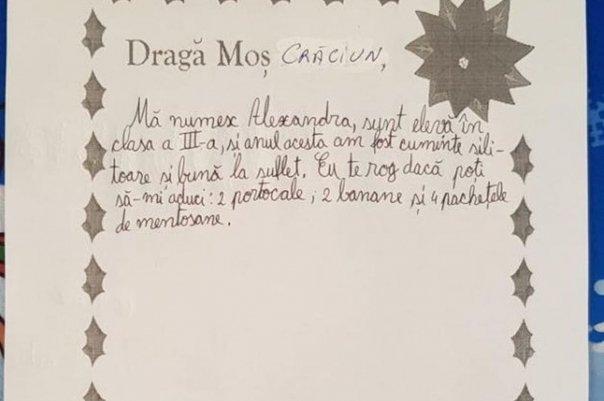 Dragă Moș CRĂCIUN,
Mă numesc Alexandra, sunt elevă în
clasa a III-a, și anul acesta am fost cuminte sili-
toare și bună la suflet. Eu te rog dacă poți
să-mi aduci: 2 portocale, 2 banane și 4 pachețele
de mentosane.